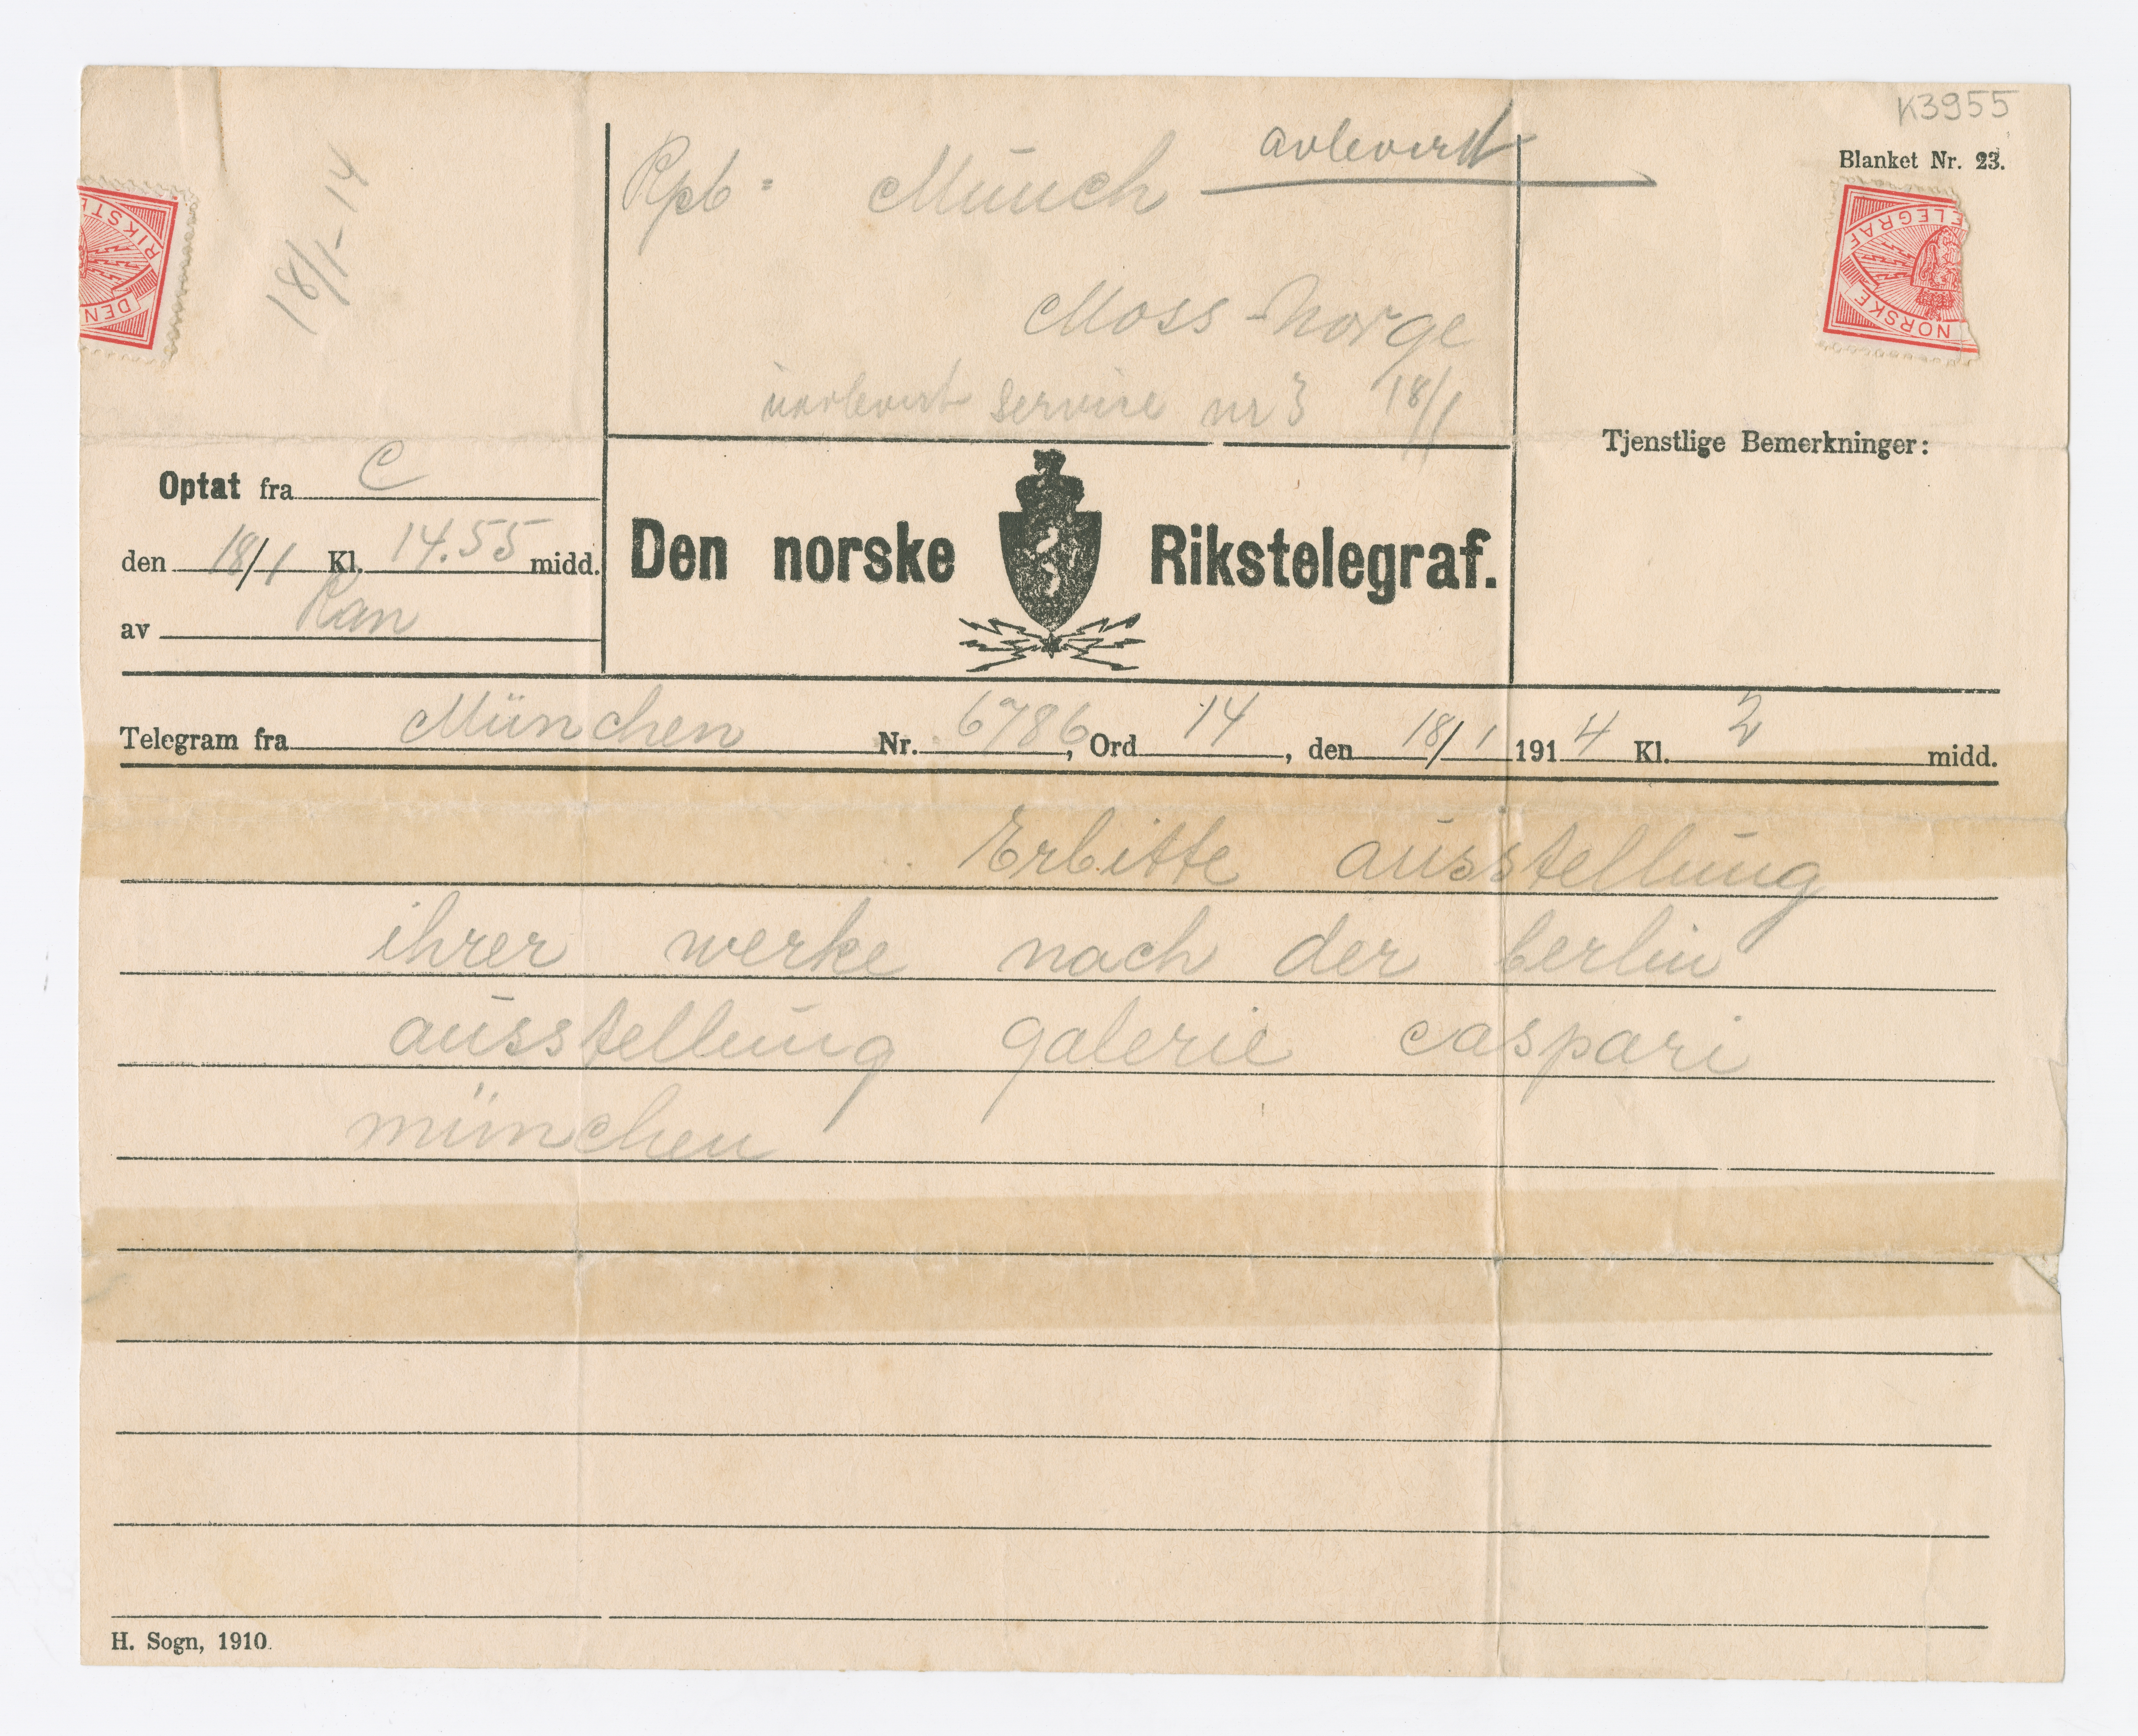 K3955
Blanket Nr. 23.
18/1-14
Rpb= Münch avlevert
Moss-Norge
service nr 3 18/1
DEN RIKSTE
NORSKE TELEGRAF
Tjenstlige Bemerkninger:
Optat fra C
den 18/1 Kl. 14.55 midd.
av Ran
Den norske Rikstelegraf.
Telegram fra München Nr. 6786, Ord 14, den 18/1 1914 Kl. 2 midd.
Erbitte ausstellung
ihrer werke nach der berlin
ausstellung galerie caspari
münchen
H. Sogn, 1910.